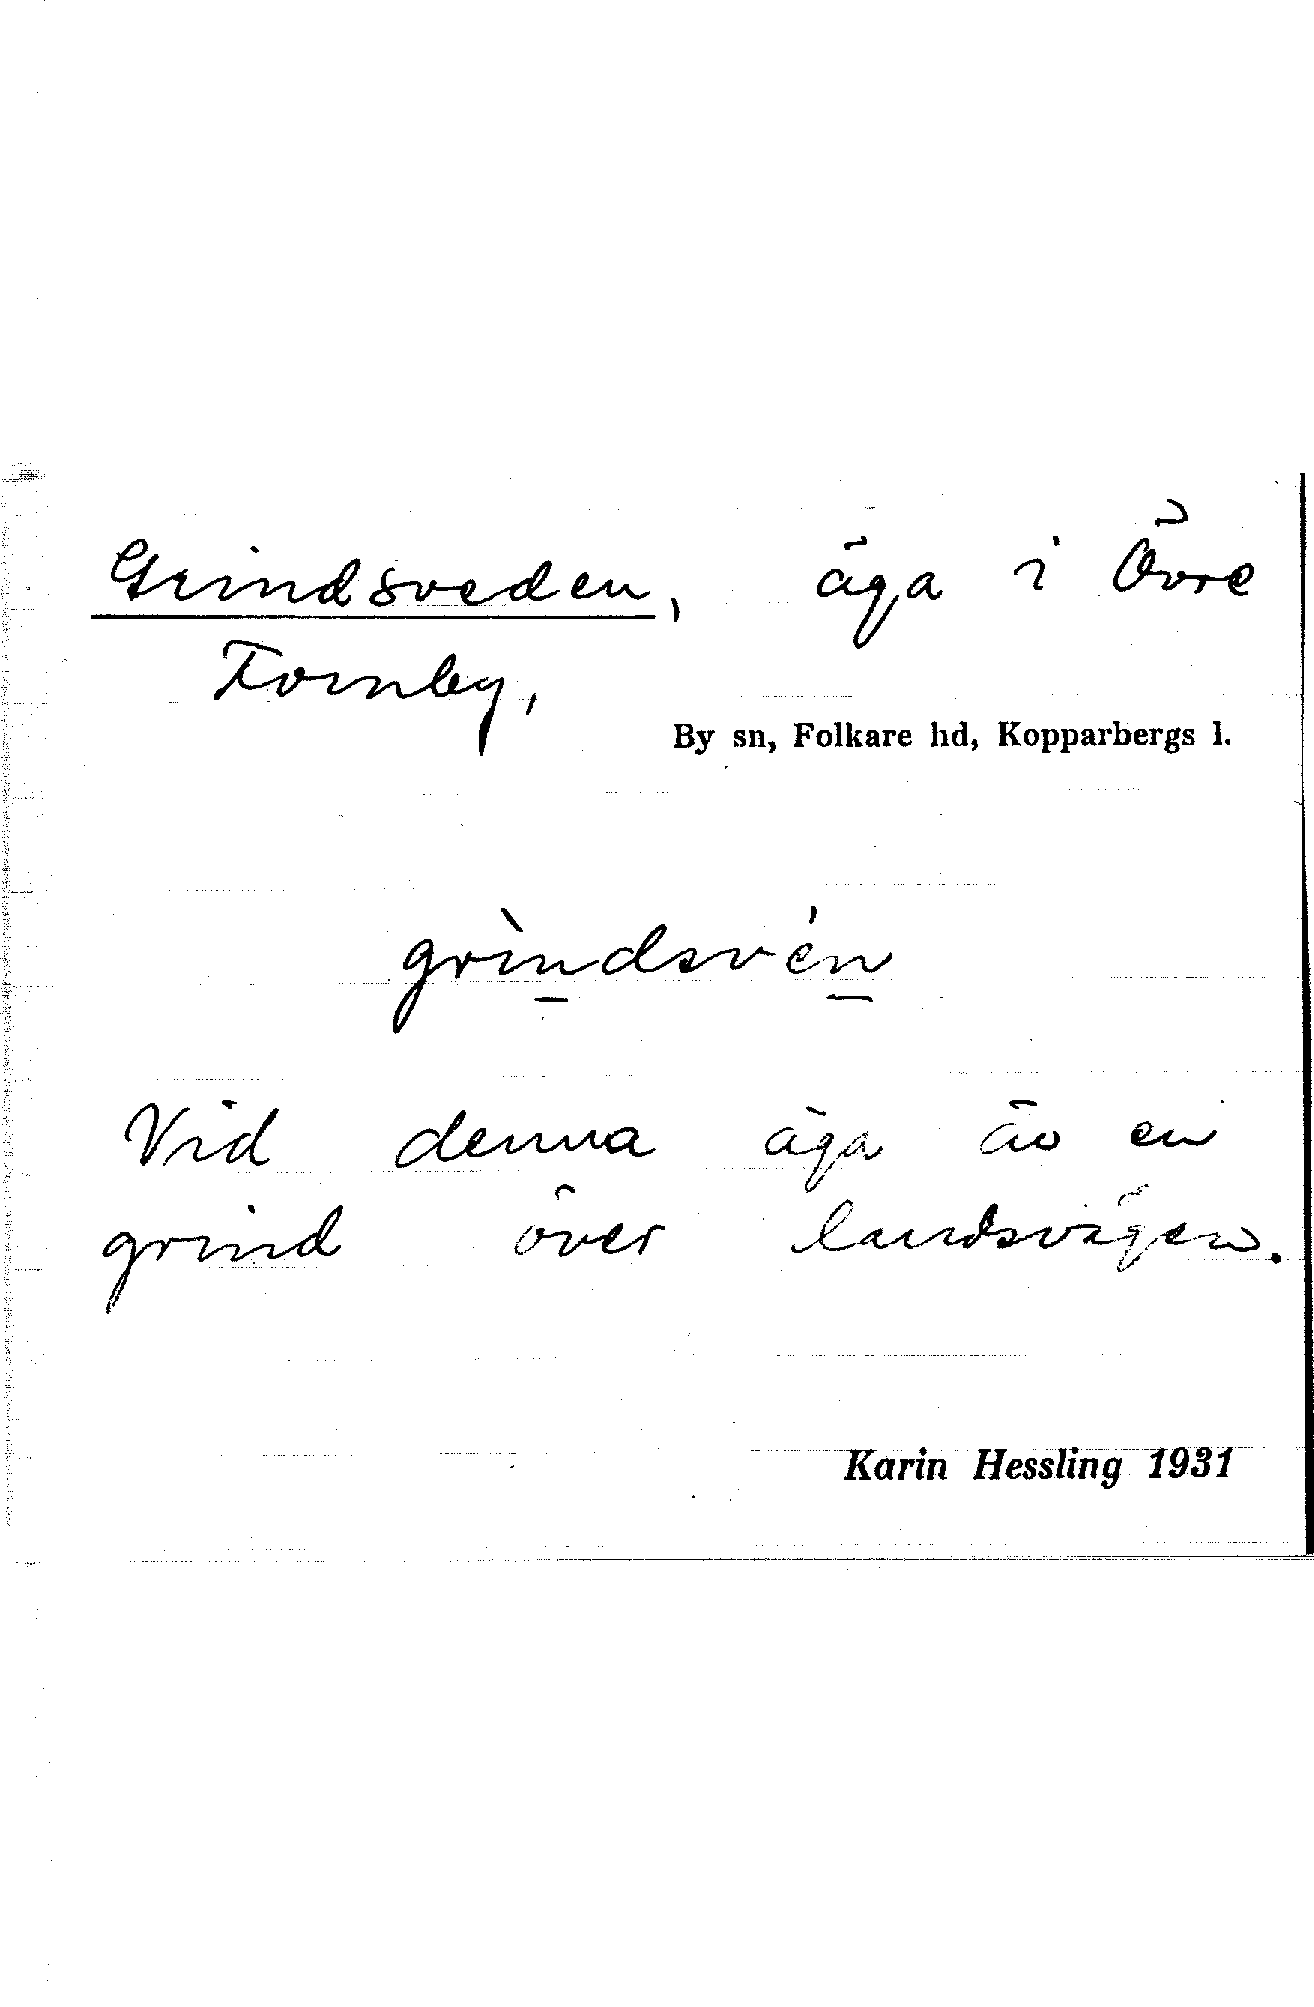 Grindsveden, äga i Övre
Fornby,
By sn, Folkare hd, Kopparbergs l.
grìndsvén
Vid denna äga är en
grind över landsvägen.
Karin Hessling 1931